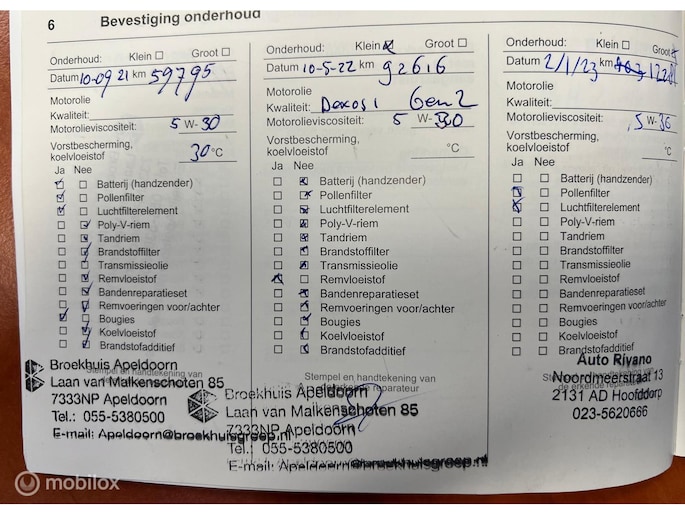 6 Bevestiging onderhoud
Onderhoud: Klein Groot
Datum 10-09 21 km 59795
Motorolie
Kwaliteit:
Motorolieviscositeit: 5 W-30
Vorstbescherming,
koelvloeistof 30 °C
Ja Nee
Batterij (handzender)
Pollenfilter
Luchtfilterelement
Poly-V-riem
Tandriem
Brandstoffilter
Transmissieolie
Remvloeistof
Bandenreparatieset
Remvoeringen voor/achter
Bougies
Koelvloeistof
Brandstofadditief
Stempel en handtekening van
Broekhuis Apeldoorn
Laan van Malkenschoten 85
7333NP Apeldoorn
Tel.: 055-5380500
E-mail: Apeldoorn@broekhuisgroep.nl
Onderhoud: Klein Groot
Datum 10-5-22 km 92616
Motorolie
Kwaliteit: Dexos 1 Gen 2
Motorolieviscositeit: 5 W-30
Vorstbescherming,
koelvloeistof °C
Ja Nee
Batterij (handzender)
Pollenfilter
Luchtfilterelement
Poly-V-riem
Tandriem
Brandstoffilter
Transmissieolie
Remvloeistof
Bandenreparatieset
Remvoeringen voor/achter
Bougies
Koelvloeistof
Brandstofadditief
Stempel en handtekening van
reparateur
Broekhuis Apeldoorn
Laan van Malkenschoten 85
7333NP Apeldoorn
Tel.: 055-5380500
E-mail: Apeldoorn@broekhuisgroep.nl
Onderhoud: Klein Groot
Datum 2/1/23 km
Motorolie
Kwaliteit:
Motorolieviscositeit: 5 W-30
Vorstbescherming,
koelvloeistof °C
Ja Nee
Batterij (handzender)
Pollenfilter
Luchtfilterelement
Poly-V-riem
Tandriem
Brandstoffilter
Transmissieolie
Remvloeistof
Bandenreparatieset
Remvoeringen voor/achter
Bougies
Koelvloeistof
Brandstofadditief
Stempel en handtekening van
de erkende reparateur
Auto Riyano
Noordmeerstraat 13
2131 AD Hoofddorp
023-5620666
mobilox